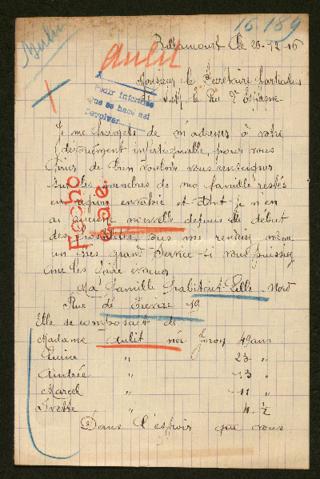 Berlin
16.189
Aulit
Bezamont le 26-12-16
Monsieur le Secrétaire Particulier
de S. M. le Roi d'Espagne
A
Para informe
que se hace asi
devolver
Je me permets de m'adresser à votre
dévouement infatigable, pour vous
prier de bien vouloir vous renseigner
sur les membres de ma famille restés
en pays envahie et dont je n'en
ai aucune nouvelle depuis le début
des vous me rendrez même
un très grand service si vous puissiez
me les faire
Fecho
Cole.
Ma Famille habitant Lille Nord
Rue de 19
Elle se composait de
Madame Aulit née Joroy 49 ans
" 23 "
Andrée " 13 "
Marcel " 11 "
Yvette " 4 ½
Dans l'espoir que vous